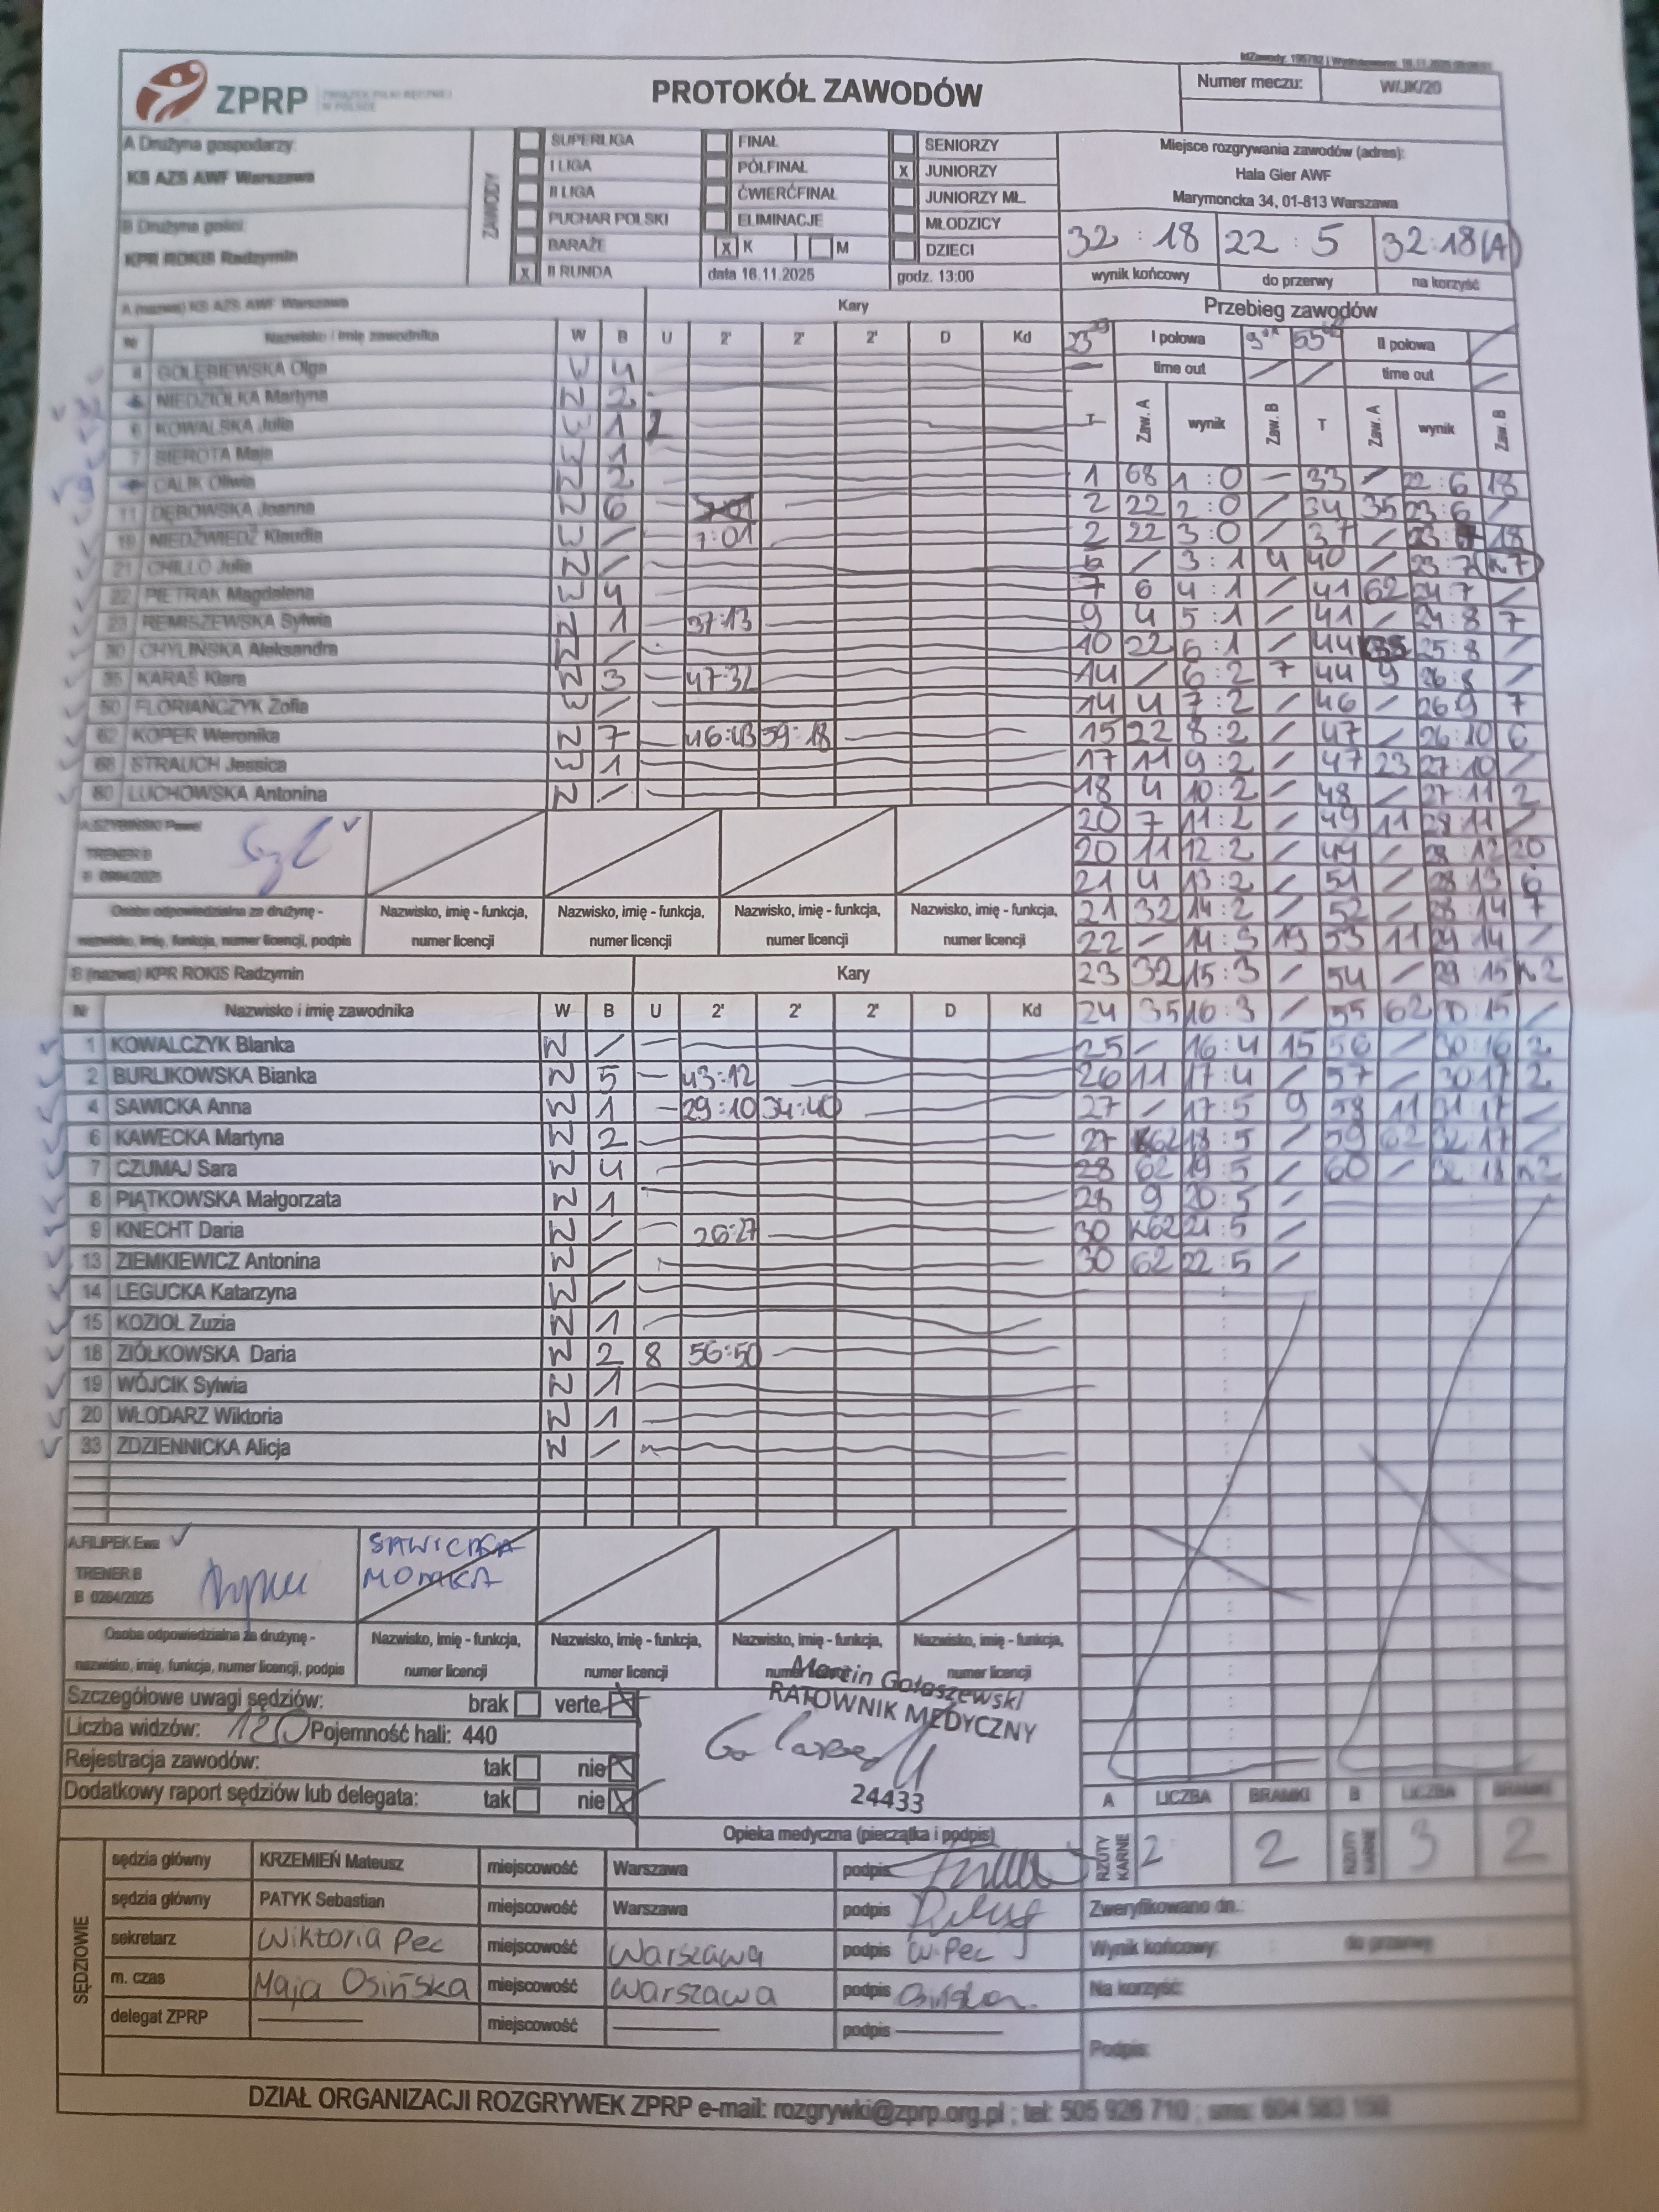 ZPRP
ZWIĄZEK PIŁKI RĘCZNEJ W POLSCE
PROTOKÓŁ ZAWODÓW
Numer meczu: W/JK/20
A Drużyna gospodarzy
KS AZS AWF Warszawa
B Drużyna gości
KPR ROKIS Radzymin
ZAWODY
SUPERLIGA
I LIGA
II LIGA
PUCHAR POLSKI
BARAŻE
X II RUNDA
FINAŁ
PÓŁFINAŁ
ĆWIERĆFINAŁ
ELIMINACJE
X K M
data 16.11.2025
SENIORZY
X JUNIORZY
JUNIORZY MŁ.
MŁODZICY
DZIECI
godz. 13:00
Miejsce rozgrywania zawodów (adres):
Hala Gier AWF
Marymoncka 34, 01-813 Warszawa
32 : 18 22 : 5 32:18 (A)
wynik końcowy do przerwy na korzyść
A (nazwa) KS AZS AWF Warszawa Kary
Nr Nazwisko i imię zawodnika W B U 2' 2' 2' D Kd
4 GOŁĘBIEWSKA Olga W 4
NIEDZIÓŁKA Martyna 2
6 KOWALSKA Julia 1
7 SIEROTA Maja 1
CALIK Oliwia 2
11 DĘBOWSKA Joanna 6
19 NIEDŹWIEDŹ Klaudia / 7:01
21 CHILLO Julia /
22 PIETRAK Magdalena 4
23 REMISZEWSKA Sylwia 1 37:13
30 CHYLIŃSKA Aleksandra /
35 KARAŚ Klara 3 47:32
50 FLORIAŃCZYK Zofia /
62 KOPER Weronika 7 46:43 59:18
68 STRAUCH Jessica 1
80 LUCHOWSKA Antonina /
A.SZYBIŃSKI Paweł
TRENER B
Osoba odpowiedzialna za drużynę - nazwisko, imię, funkcja, numer licencji, podpis
Nazwisko, imię - funkcja, numer licencji
Nazwisko, imię - funkcja, numer licencji
Nazwisko, imię - funkcja, numer licencji
Nazwisko, imię - funkcja, numer licencji
B (nazwa) KPR ROKIS Radzymin Kary
Nr Nazwisko i imię zawodnika W B U 2' 2' 2' D Kd
1 KOWALCZYK Blanka W /
2 BURLIKOWSKA Bianka W 5 43:12
4 SAWICKA Anna W 1 29:10 34:40
6 KAWECKA Martyna W 2
7 CZUMAJ Sara W 4
8 PIĄTKOWSKA Małgorzata W 1
9 KNECHT Daria W / 26:27
13 ZIEMKIEWICZ Antonina W /
14 LEGUCKA Katarzyna W /
15 KOZIOŁ Zuzia W 1
18 ZIÓŁKOWSKA Daria W 2 8 56:50
19 WÓJCIK Sylwia W 1
20 WŁODARZ Wiktoria W 1
33 ZDZIENNICKA Alicja W /
A.FILIPEK Ewa
TRENER B
B 0264/2025
SAWICKA
MONIKA
Osoba odpowiedzialna za drużynę - nazwisko, imię, funkcja, numer licencji, podpis
Nazwisko, imię - funkcja, numer licencji
Nazwisko, imię - funkcja, numer licencji
Nazwisko, imię - funkcja, numer licencji
Nazwisko, imię - funkcja, numer licencji
Przebieg zawodów
I połowa II połowa
time out time out
T Zaw. A wynik Zaw. B T Zaw. A wynik Zaw. B
1 68 1 : 0 - 33 / 22 : 6 18
2 22 2 : 0 / 34 35 23 : 6 /
2 22 3 : 0 / 37 / 23 : 7 18
5 / 3 : 1 4 40 / 23 : 7 n7
7 6 4 : 1 / 41 62 24 : 7 /
9 4 5 : 1 / 41 / 24 : 8 7
10 22 6 : 1 / 44 35 25 : 8 /
14 / 6 : 2 7 44 9 26 : 8 /
14 4 7 : 2 / 46 / 26 9 7
15 22 8 : 2 / 47 / 26 : 10 6
17 11 9 : 2 / 47 23 27 : 10 /
18 4 10 : 2 / 48 / 27 : 11 2
20 7 11 : 2 / 49 11 28 : 11 /
20 11 12 : 2 / 49 / 28 : 12 20
21 4 13 : 2 / 51 / 28 : 13 6
21 32 14 : 2 / 52 / 28 : 14 7
22 - 14 : 3 19 53 11 29 14 /
23 32 15 : 3 / 54 / 29 : 15 n2
24 35 16 : 3 / 55 62 30 : 15 /
25 - 16 : 4 15 56 / 30 : 16 2
26 11 17 : 4 / 57 / 30 : 17 2
27 / 17 : 5 9 58 11 31 : 17 /
27 62 18 : 5 / 59 62 32 : 17 /
28 62 19 : 5 / 60 / 32 : 18 n2
28 9 20 : 5 /
30 k62 21 : 5 /
30 62 22 : 5 /
Szczegółowe uwagi sędziów: brak verte X
Liczba widzów: 120 Pojemność hali: 440
Rejestracja zawodów: tak nie X
Dodatkowy raport sędziów lub delegata: tak nie X
Marcin Gołaszewski
RATOWNIK MEDYCZNY
24433
Opieka medyczna (pieczątka i podpis)
A LICZBA BRAMKI B LICZBA BRAMKI
RZUTY KARNE 2 2 RZUTY KARNE 3 2
SĘDZIOWIE
sędzia główny KRZEMIEŃ Mateusz miejscowość Warszawa podpis
sędzia główny PATYK Sebastian miejscowość Warszawa podpis
sekretarz Wiktoria Pec miejscowość Warszawa podpis W. Pec
m. czas Maja Osińska miejscowość Warszawa podpis
delegat ZPRP miejscowość podpis
Zweryfikowano dn.:
Wynik końcowy: do przerwy
Na korzyść:
Podpis:
DZIAŁ ORGANIZACJI ROZGRYWEK ZPRP e-mail: rozgrywki@zprp.org.pl ; tel: 505 926 710 ; sms: 604 583 150